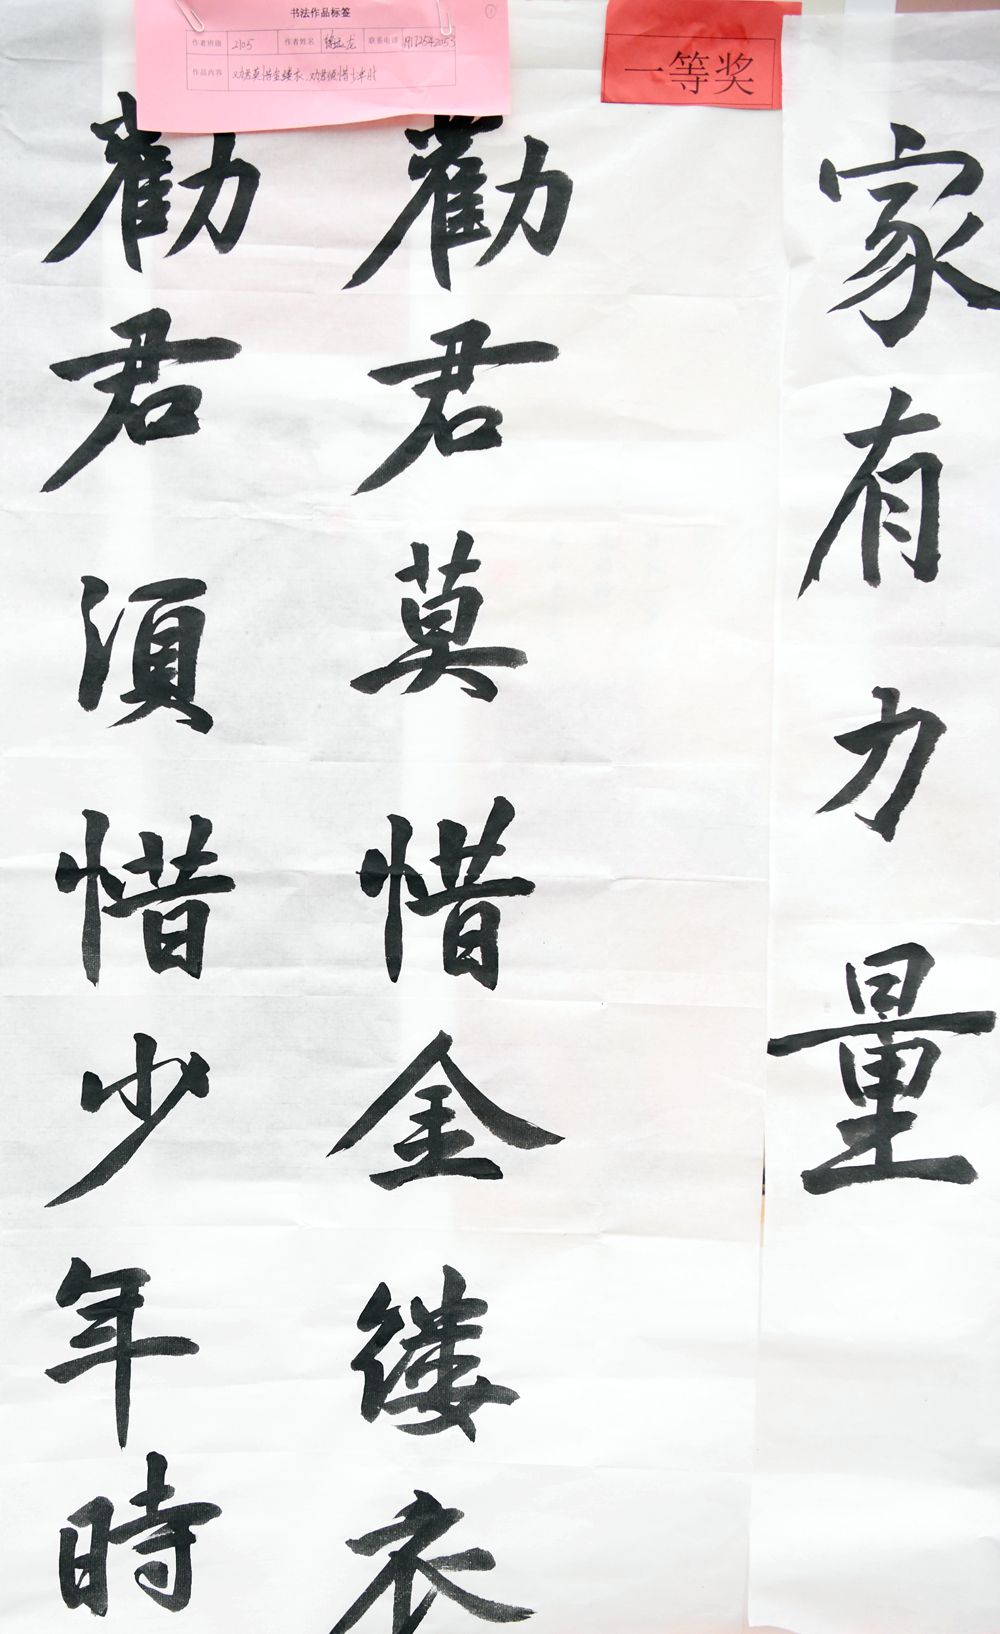 书法作品标签
作者班级 2105 作者姓名 联系电话
作品内容 劝君莫惜金缕衣 劝君须惜少年时
一等奖
家有力量
勸君莫惜金缕衣
勸君須惜少年時